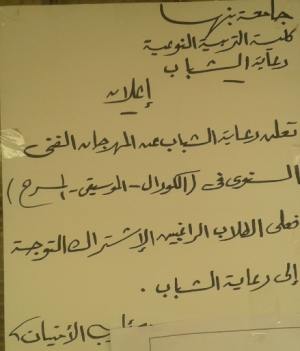 جامعة بنها
كلية التربية النوعية
رعاية الشباب
إعلان
تعلن رعاية الشباب عن المهرجان الفنى
السنوى فى (الكورال - الموسيقى - المسرح)
فعلى الطلاب الراغبين الإشتراك التوجة
إلى رعاية الشباب .